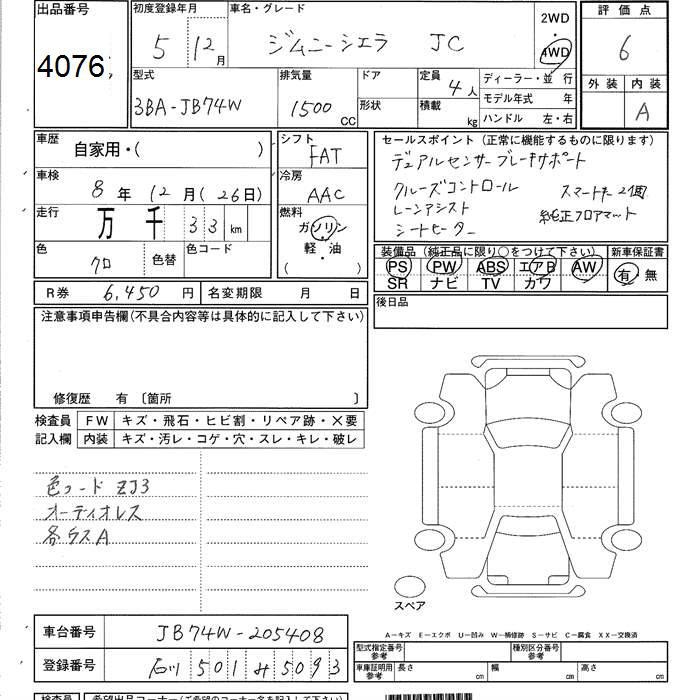 出品番号 初度登録年月 車名・グレード 2WD・4WD 評価点
4076 5 12月 ジムニーシエラ JC 6
型式 排気量 ドア 定員 ディーラー・並行 外装 内装
3BA-JB74W 1500cc 形状 4人 モデル年式 年 A
積載 kg ハンドル 左・右
車歴 自家用・( ) シフト FAT セールスポイント (正常に機能するものに限ります)
デュアルセンサーブレーキサポート
車検 8年12月(26日) 冷房 AAC クルーズコントロール スマートキー2個
走行 万千33km 燃料 ガソリン レーンアシスト 純正フロアマット
軽・油 シートヒーター
( )
色 クロ 色替 色コード 装備品 (純正品に限り○をつけて下さい) 新車保証書
PS PW ABS エアB AW 有・無
SR ナビ TV カワ
R券 6,450円 名変期限 月 日 後日品
注意事項申告欄(不具合内容等は具体的に記入して下さい)
修復歴 有 〔箇所 〕
検査員 FW キズ・飛石・ヒビ割・リペア跡・×要
記入欄 内装 キズ・汚レ・コゲ・穴・スレ・キレ・破レ
色コード ZJ3
オーディオレス
スペア
A−キズ E−エクボ U−凹み W−補修跡 S−サビ C−腐食 XX−交換済
車台番号 JB74W-205408
型式指定番号 参考 種別区分番号 参考
登録番号 石川 501 み 5093
車庫証明用 参考 長さ cm 幅 cm 高さ cm
検査員 希望出品コーナー(ご希望のコーナー名を記入下さい)